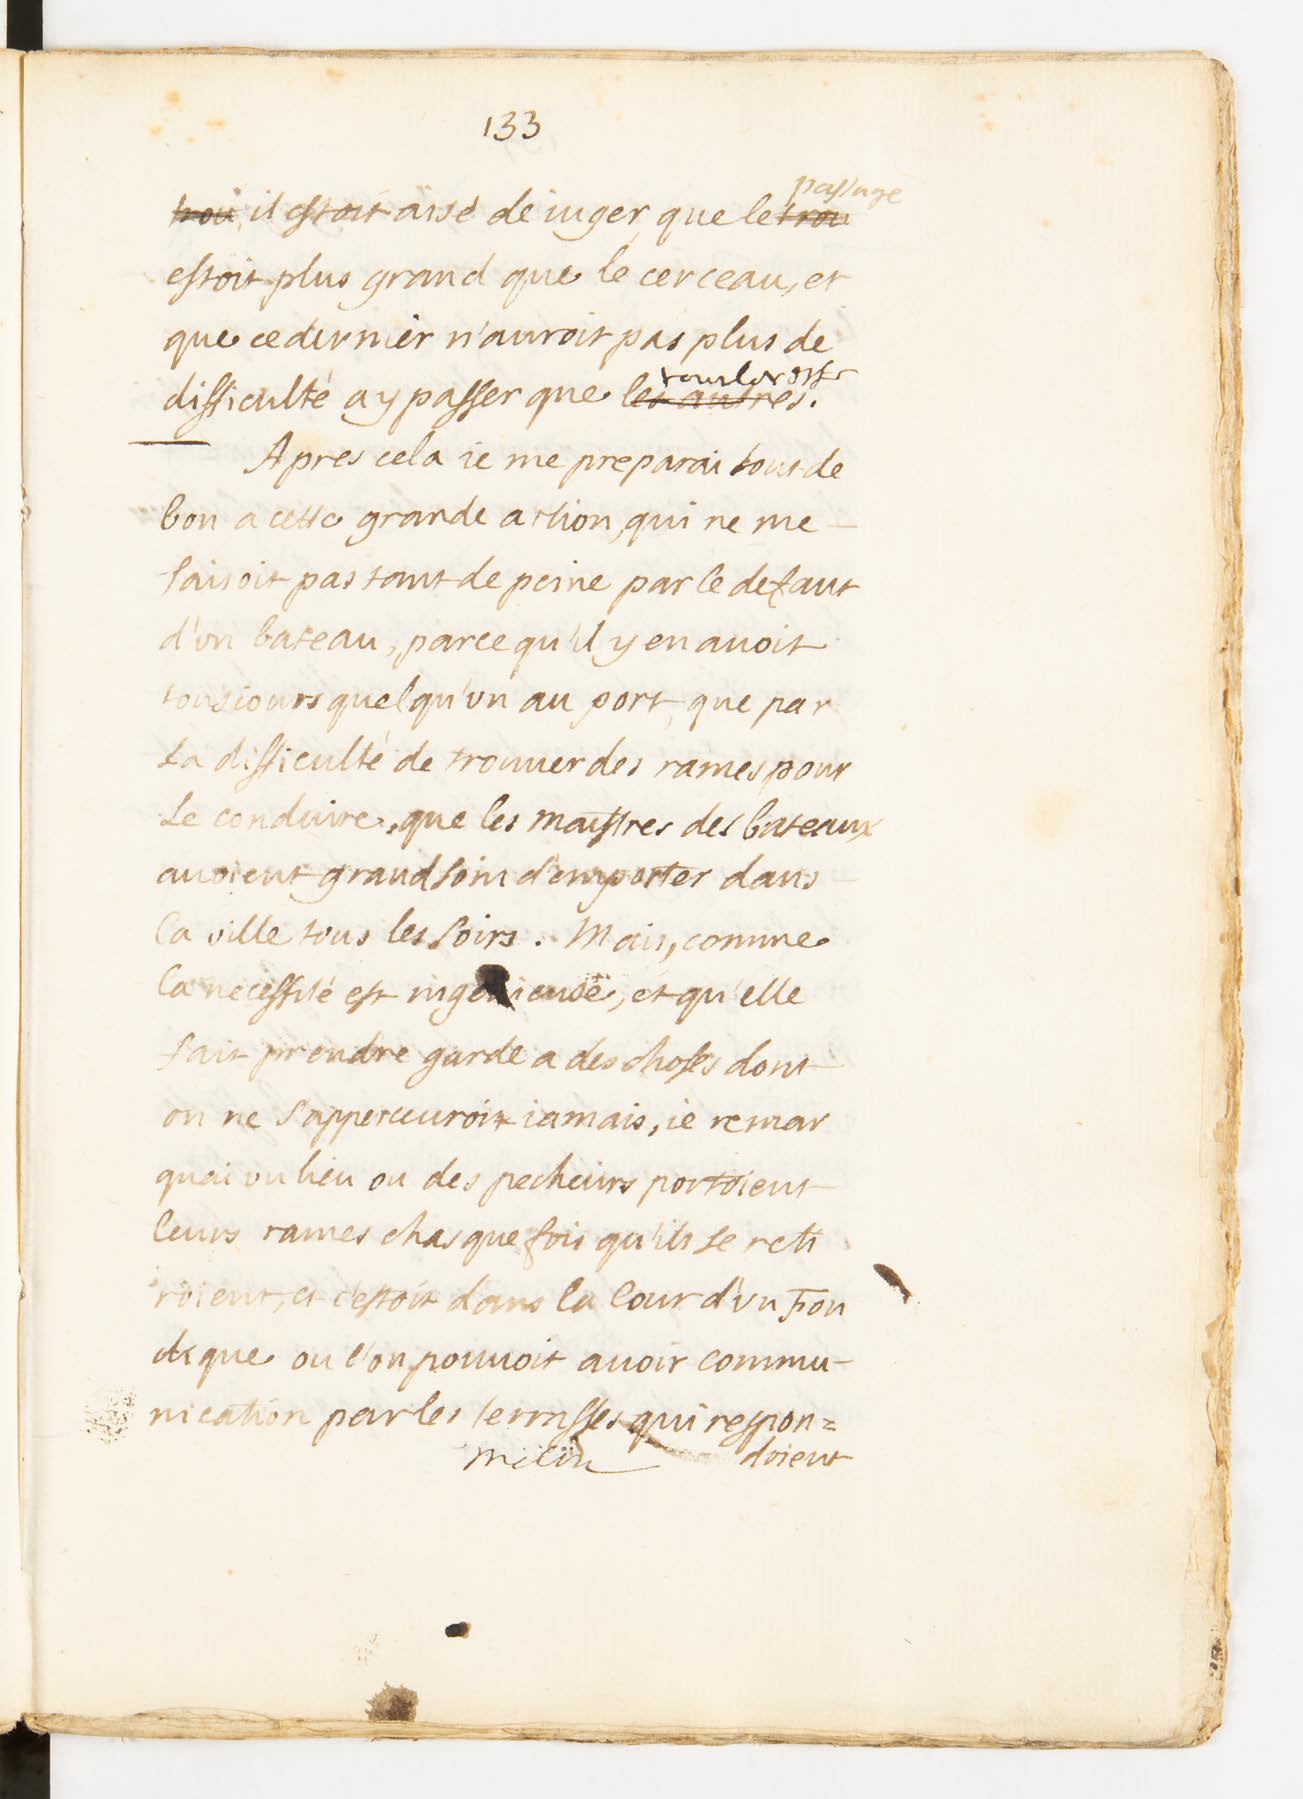 133
passage
trou, il estoit aisé de iuger, que le trou
estoit plus grand que le cerceau, et
que ce dernier n'auroit pas plus de
difficulté a y passer que les autres.
Apres cela ie me preparai tout de
bon a cette grande action, qui ne me
faisoit pas tant de peine par le defaut
d'vn bateau, parce qu'il y en auoit
tousiours quelqu'vn au port, que par
la difficulté de trouuer des rames pour
le conduire, que les maistres des bateaux
auoient grand soin d'emporter dans
la ville tous les soirs. Mais, comme
la necessité est ingenieuse, et qu'elle
fait prendre garde a des choses dont
on ne s'apperceuroit iamais, ie remar
quai vn lieu ou des pecheurs portoient
leurs rames chasque fois qu'ils se reti
roient, et c'estoit dans la Cour d'vn Fon
dique ou l'on pouuoit auoir commu-
nication par les terrasses qui respon=
doient